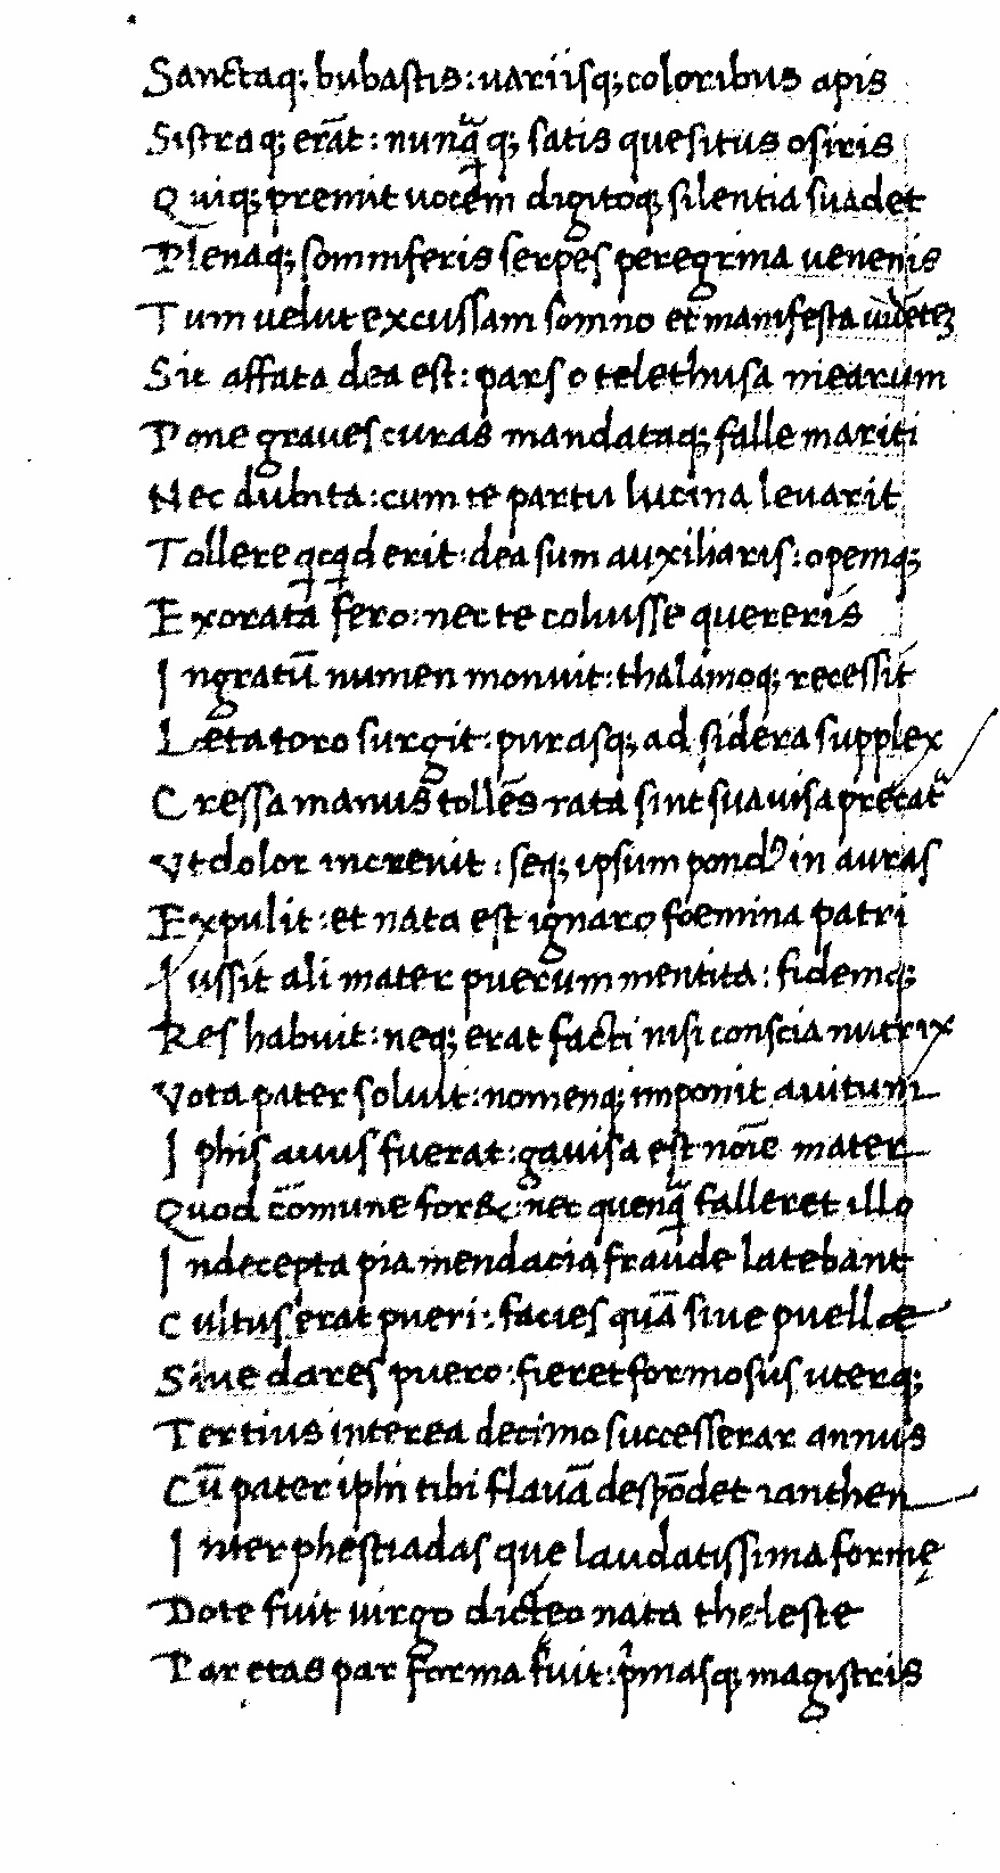 Sanctaq; bubastis: uariisq; coloribus apis
Sistraq; erāt: nunqᷓ q; satis quesitus osiris
Quiq; premit uocem digitoq; silentia suadet
Plenaq; somniferis serpēs peregrina venenis
Tum velut excussam somno et manifesta uidēteʒ
Sic affata dea est: pars o telethusa mearum
Pone graues curas mandataq; falle mariti
Nec dubita: cum te partu lucina levarit
Tollere qcqd erit: dea sum auxiliaris: opemq;
Exorata fero: nec te coluisse quereris
Ingratū numen monuit: thalamoq; recessit
Læta toro surgit: purasq; ad sidera supplex
Cressa manus tollēs rata sint sua uisa precatᷓ
Vt dolor increvit: seq; ipsum pondꝰ in auras
Expulit: et nata est ignaro foemina patri
Iussit ali mater puerum mentita: fidemq;
Res habuit: neq; erat facti nisi conscia nutrix
Vota pater soluit: nomenq; imponit avitum
Iphis auus fuerat: gauisa est noīe mater
Quod cōmune foret: nec quenqᷓ falleret illo
Indecepta pia mendacia fraude latebant
Cultus erat pueri: facies quā siue puellæ
Siue dares puero: fieret formosus uterq;
Tertius interea decimo successerar annus
Cū pater iphi tibi flauā despōdet ianthen
Inter phestiadas que laudatissima formę
Dote fuit uirgo dicteo nata theleste
Par etas par forma fuit: pͥmasq; magistris